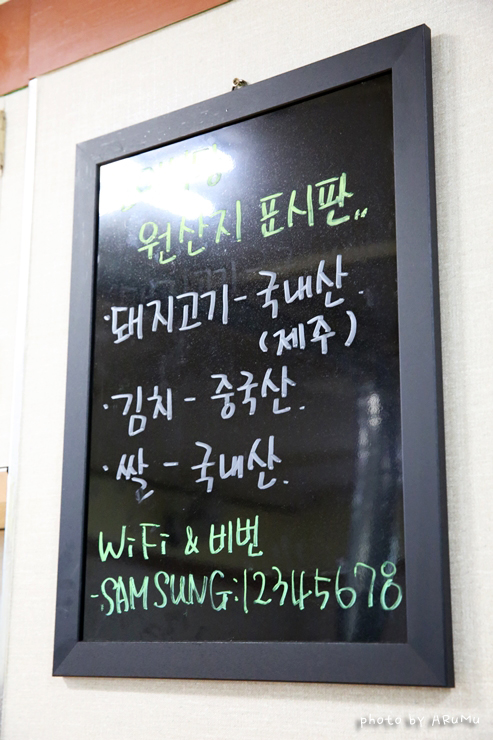 원산지 표시판,,
·돼지고기-국내산.
(제주)
·김치 - 중국산.
·쌀 - 국내산.
WiFi & 비번
-:SAMSUNG:12345678
photo by ARuMu